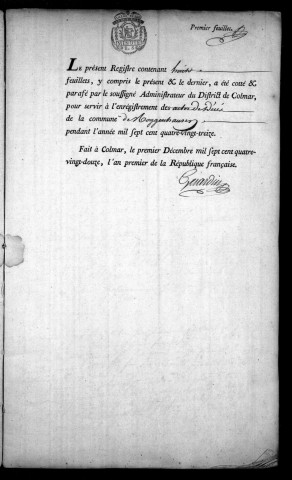 Premier feuillet.
LE présent Registre contenant
feuillets, y compris le présent & le dernier, a été cotté &
parafé par le soussigné Administrateur du District de Colmar,
pour servir à l'enrégistrement des actes de décès
de la commune de Roggenhausen
pendant l'année mil sept cent quatre-vingt-treize.
Fait à Colmar, le premier Décembre mil sept cent quatre-
vingt-douze, l'an premier de la République française.